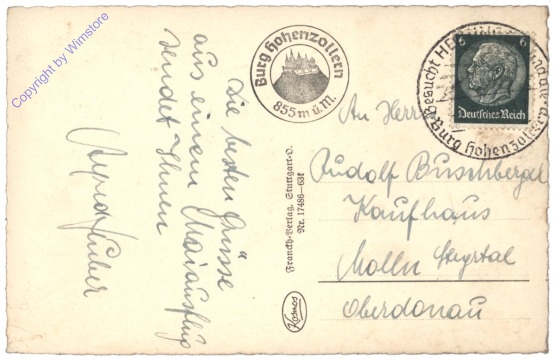 Copyright by Wimstore
Die besten Grüsse
aus einem Maiausflug
sendet Ihnen
Huber
Burg Hohenzollern
855 m ü. M.
Franckh-Verlag, Stuttgart-O.
Nr. 17486-63f
Kosmos
6 6
Deutsches Reich
Besucht
Burg Hohenzollern
An Herrn
Rudolf Buschberger
Kaufhaus
Molln Steyrtal
Oberdonau